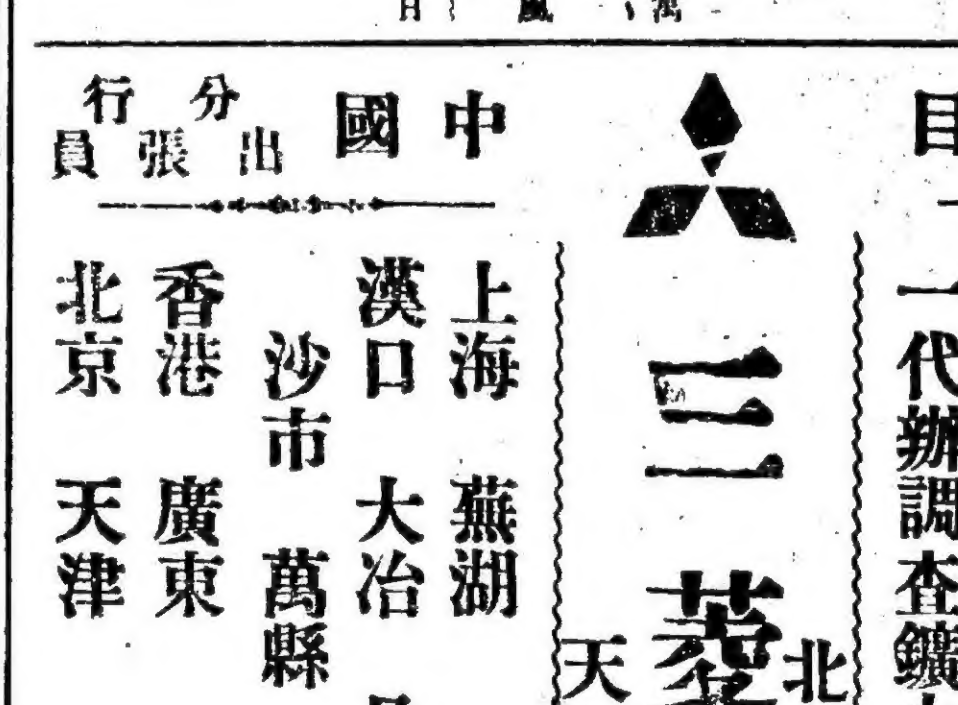 目
一代辦調查鑛
三菱
北
天
中國
分行
出張員
上海 蕪湖
漢口 大冶
沙市 萬縣
香港 廣東
北京 天津